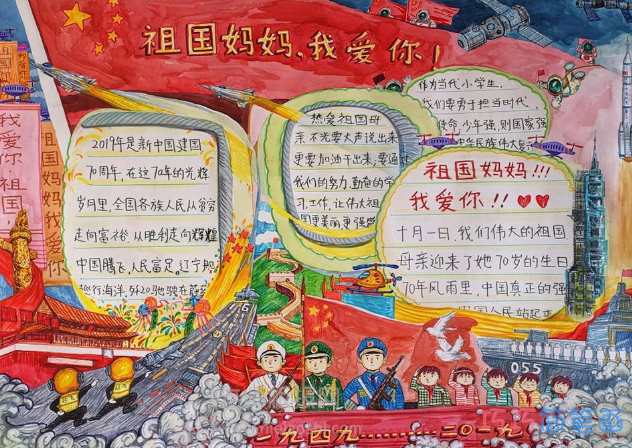 祖国妈妈、我爱你！
我爱你·祖国
祖国妈妈我爱你
2019年是新中国建国
70周年，在这70年的光辉
岁月里，全国各族人民从贫穷
走向富裕，从胜利走向辉煌
中国腾飞，人民富足。辽宁舰
热爱祖国母
亲不光要大声说出来
更要加油干出来，要通过
我们的努力，勤奋的学
习、工作，让伟大祖
国更美丽更强盛
作为当代小学生，
我们要勇于担当时代
使命，少年强，则国家强
祖国妈妈!!!
我爱你!!
十月一日，我们伟大的祖国
母亲迎来了她70岁的生日
70年风雨里，中国真正的强
中国人民站起来
055
一九四九
二〇一九